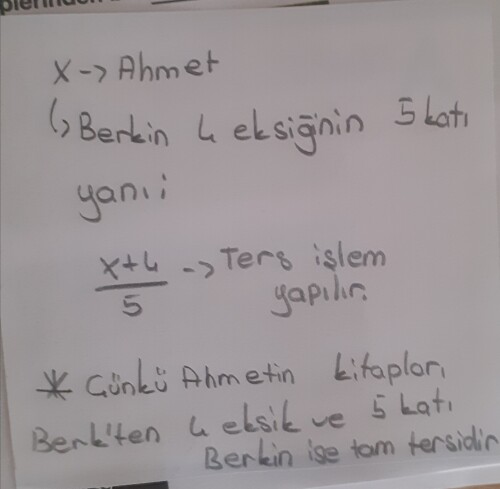 x -> Ahmet
↳ Berkin 4 eksiğinin 5 katı
yani:
x+4
5
-> Ters işlem
yapılır.
* Günkü Ahmetin kitapları
Berk'ten 4 eksik ve 5 katı
Berkin ise tam tersidir